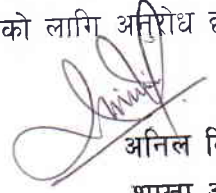 को लागि अनुरोध
अनिल
शाखा